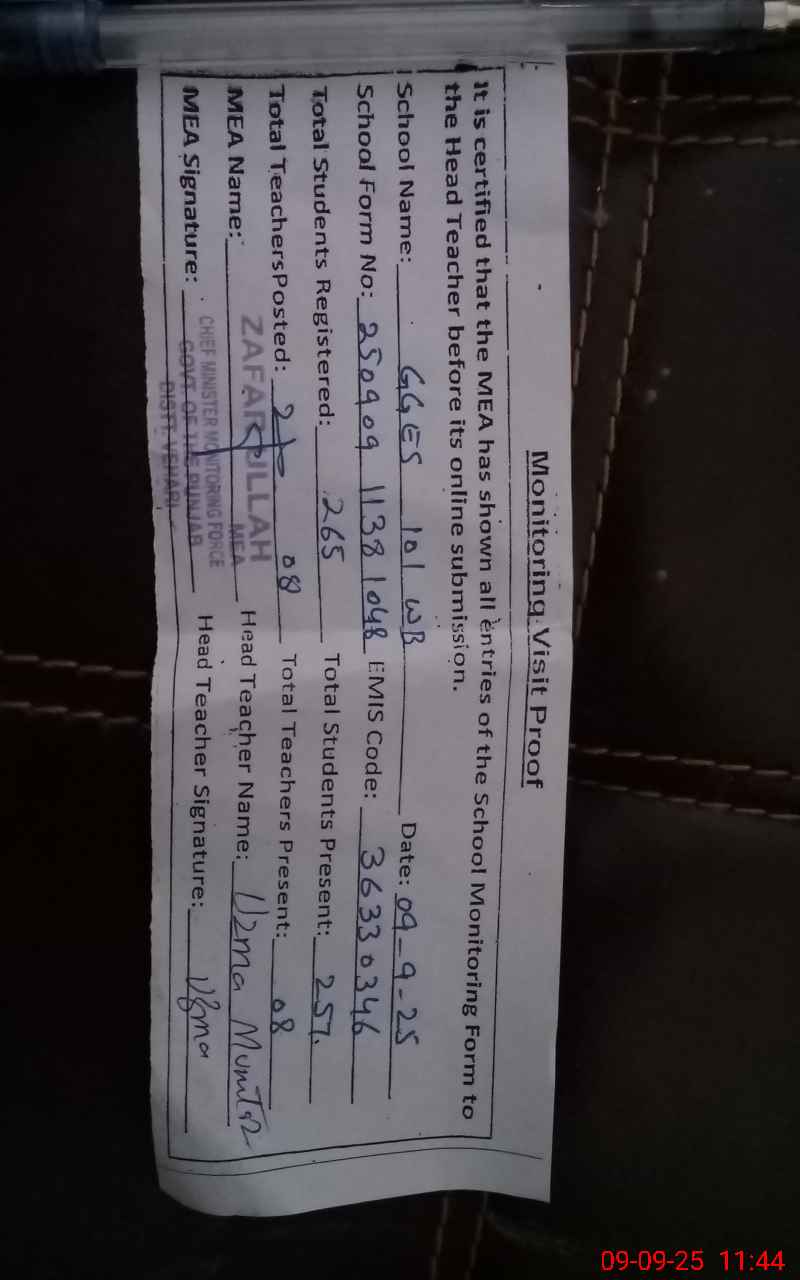 Monitoring Visit Proof
It is certified that the MEA has shown all entries of the School Monitoring Form to
the Head Teacher before its online submission.
School Name: GGES 101 WB Date: 09-9-25
School Form No: 250909 11381048 EMIS Code: 36330346
Total Students Registered: 265 Total Students Present: 257.
Total TeachersPosted: 08 Total Teachers Present: 08
MEA Name: ZAFARULLAH Head Teacher Name: Uzma Mumtaz
MEA
MEA Signature: Head Teacher Signature: Uzma
CHIEF MINISTER MONITORING FORCE
GOVT. OF THE PUNJAB
DISTT. VEHARI
09-09-25 11:44